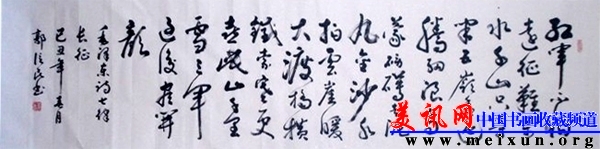 红军不怕
远征难万
水千山只等
闲五岭逶迤
腾细浪乌
蒙磅礴走泥
丸金沙水
拍云崖暖
大渡桥横
铁索寒更
喜岷山千里
雪三军
过后尽开
颜
毛泽东诗七律
长征
己丑年春月
美讯网
中国书画收藏频道